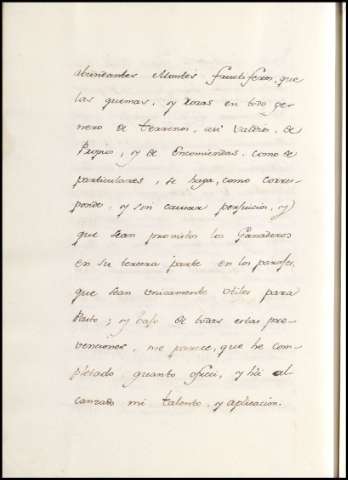 abundantes Montes fructiferos, que
las quemas, y rozas en todo ge-
nero de terrenos, asi Valdíos, de
Propios, y de Encomiendas, como de
particulares, se haga, como corres-
ponde, y sin causar perjuicios, y
que sean promotos los Ganaderos
en su tercera parte en los parages,
que sean unicamente utiles para
Pasto; y bajo de todas estas pre-
venciones, me parece, que he com-
pletado quanto ofreci, y há al-
canzado mi talento, y aplicación.